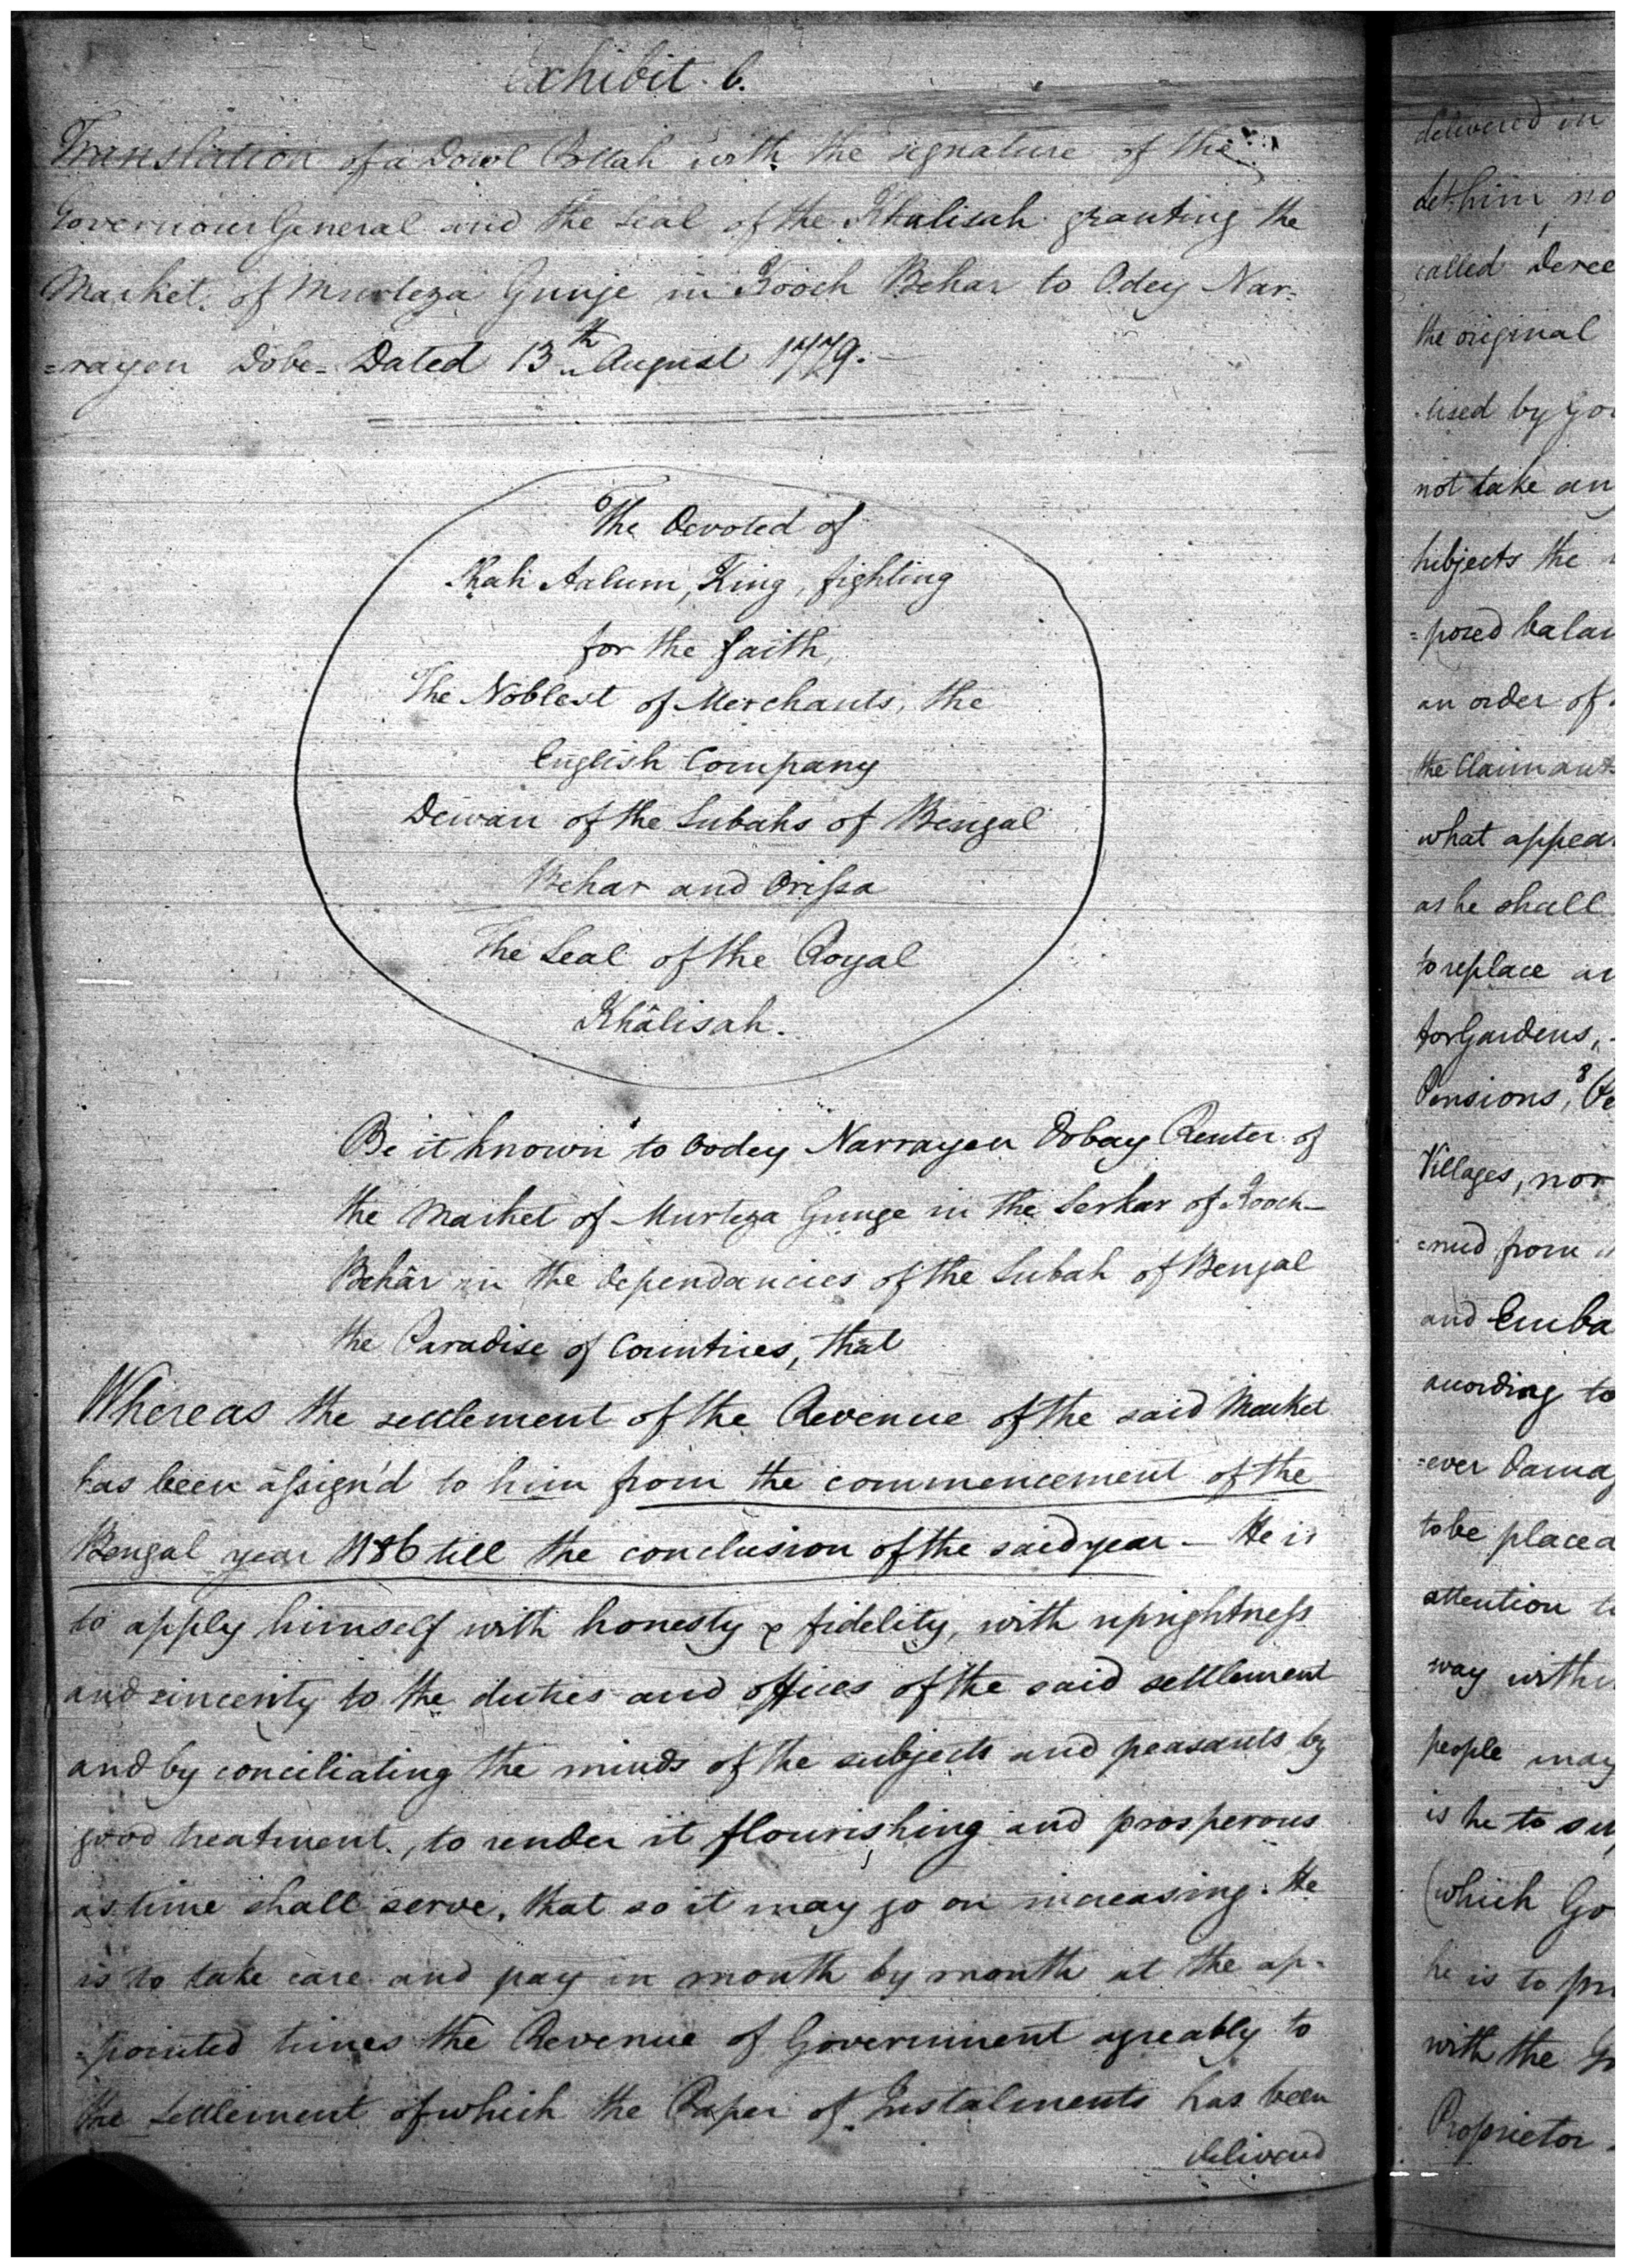 Exhibit. 6.
Translation of a Dowl Pottah with the signature of the
Governour General and the Seal of the Khalisah granting the
Market. of Murteza Gunje in Kooch Behar to Odey Nar=
=rayen Dobe - Dated 13th August 1779. -
The Devoted of
Shah Aalum, King, fighting
for the faith,
The Noblest of Merchants, the
English Company
Dewan of the Subahs of Bengal
Behar and Orissa
The Seal of the Royal
Khâlisah.
Be it known to Oodey Narrayen Dobay Renter of
the Market of Murteza Gunge in the Serkar of Kooch-
Behâr in the dependancies of the Subah of Bengal
the Paradise of Countries, that
Whereas the settlement of the Revenue of the said Market
has been assign'd to him from the commencement of the
Bengal year 1186 till the conclusion of the said year - He is
to apply himself with honesty & fidelity, with uprightness
and sincerity to the duties and offices of the said settlement
and by conciliating the minds of the subjects and peasants by
good treatment, to render it flourishing and prosperous
as time shall serve, that so it may go on increasing. He
is to take care and pay in month by month at the ap=
=pointed times the Revenue of Government agreably to
the settlement of which the Paper of Instalments has been
deliverd
delivered in
let him no
called Deree
the original
used by Go
not take an
subjects the
=posed bala
an order of
the Claimant
what appea
as he shall
to replace a
for Gardens,
Pensions,
Villages, nor
from
and Emba
according to
=ever Dama
to be placed
attention t
way withi
people may
is he to su
(which Go
he is to pr
with the
Proprietor